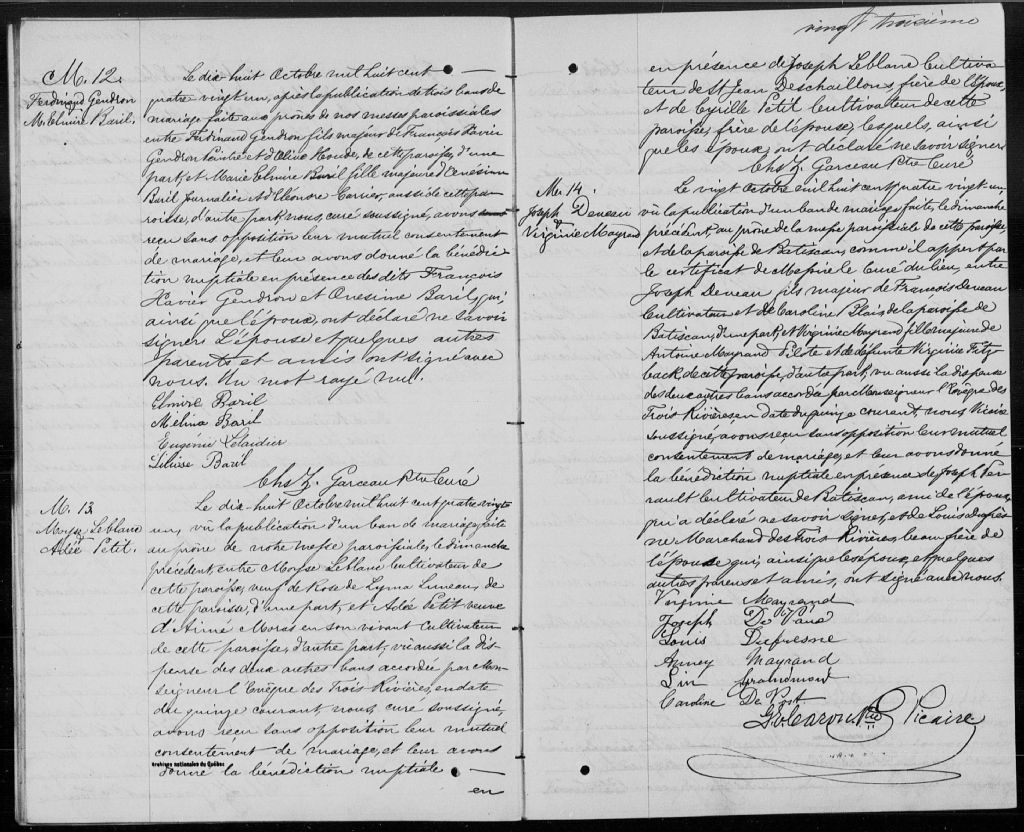 M. 12.
Ferdinand Gendron
M. Elmire Baril.
Le dix-huit Octobre mil huit cent
quatre vingt un, après la publication de trois bans de
mariage faite aux prônes de nos messes paroissiales
entre Ferdinand Gendron fils majeur de François Xavier
Gendron Peintre et d'Olive Houde, de cette paroisse, d'une
part, et Marie Elmire Baril fille majeure d'Onésime
Baril Journalier et d'Eléonore Carrier, aussi de cette pa-
roisse, d'autre part, nous, curé soussigné, avons
reçu sans opposition leur mutuel consentement
de mariage, et leur avons donné la bénédic-
tion nuptiale en présence des dits François
Xavier Gendron et Onesime Baril, qui,
ainsi que l'époux, ont déclaré ne savoir
signer. L'épouse et quelques autres
parents et amis ont signé avec
nous. Un mot rayé nul.
Elmire Baril
Mélina Baril
Eugénie
Baril
Chs Z. Garceau Ptre Curé
M. 13
Moyse Leblanc
&
Adée Petit.
Le dix-huit Octobre mil huit cent quatre vingt
un, vû la publication d'un ban de mariage, faite
au prône de notre messe paroissiale, le dimanche
précédent, entre Moyse Leblanc Cultivateur de
cette paroisse, veuf de Rose de Lyma, de
cette paroisse, d'une part, et Adée Petit veuve
d'Aimé Moras en son vivant Cultivateur
de cette paroisse, d'autre part, vû aussi la dis-
pense des deux autres bans accordée par Mon-
seigneur l'Evêque des Trois Rivières, en date
du quinze courant, nous, curé soussigné,
avons reçu sans opposition leur mutuel
consentement de mariage, et leur avons
Archives nationales du Québec
donné la bénédiction nuptiale
en
vingt troisième
en présence de Joseph Leblanc Cultiva-
teur de St Jean Deschaillons, frère de l'Epoux,
et de Cyrille Petit Cultivateur de cette
paroisse, frère de l'épouse, lesquels, ainsi
que les époux, ont déclaré ne savoir signer.
Chs Z. Garceau Ptre Curé
M. 14.
Joseph Deneau
&
Virginie Mayrand
Le vingt Octobre mil huit cent quatre vingt-un,
vû la publication d'un ban de mariage faite le dimanche
précédent, au prône de la messe paroissiale de cette paroisse,
et de la paroisse de Batiscan, comme il appert par
le certificat de Messire le Curé du lieu, entre
Joseph Deneau fils majeur de François Deneau
Cultivateur et de Caroline Blais de la paroisse de
Batiscan, d'une part, et Virginie Mayrand fille majeure de
Antoine Mayrand Pilote et de défunte Virginie Fitz-
back, de cette paroisse, d'autre part, vu aussi la dispense
des deux autres bans accordée par Monseigneur l'Evêque des
Trois Rivières, en date du quinze courant, nous Vicaire
soussigné, avons reçu sans opposition leur mutuel
consentement de mariage, et leur avons donné
la bénédiction nuptiale en présence de Joseph Per-
rault Cultivateur de Batiscan, ami de l'époux,
qui a déclaré ne savoir signer, et de Louis Dufrès-
ne Marchand des Trois Rivières, beau frère de
l'épouse qui, ainsi que les époux, et quelques
autres parens et amis, ont signé avec nous.
Virginie Mayrand
Joseph
Louis Dufresne
Anney Mayrand
Grandmont
Caroline
Ptre Vicaire